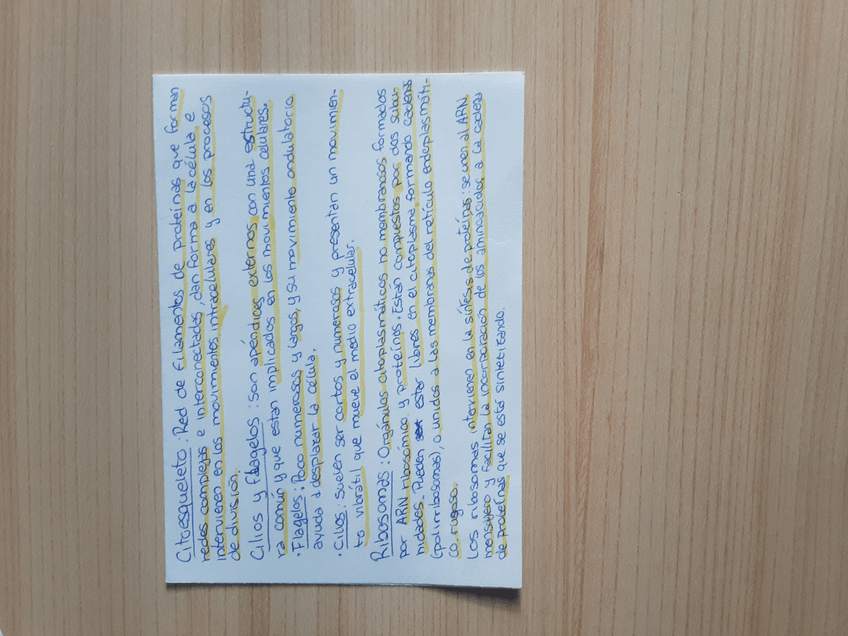 Citoesqueleto: Red de filamentos de proteínas que forman
redes complejas e interconectadas, dan forma a la célula e
intervienen en los movimientos intracelulares y en los procesos
de división.
Cilios y Flagelos: Son apéndices externos con una estructu-
ra común y que están implicados en los movimientos celulares.
· Flagelos: Poco numerosos y largos, y su movimiento ondulatorio
ayuda a desplazar la célula.
· Cilios: Suelen ser cortos y numerosos y presentan un movimien-
to vibrátil que mueve el medio extracelular.
Ribosomas: Orgánulos citoplasmáticos no membranosos formados
por ARN ribosómico y proteínas. Están compuestos por dos subu-
nidades. Pueden estar libres en el citoplasma formando cadenas
(polirribosomas), o unidos a las membranas del retículo endoplasmáti-
co rugoso.
Los ribosomas intervienen en la síntesis de proteínas: se unen al ARN
mensajero y facilitan la incorporación de los aminoácidos a la cadena
de proteínas que se está sintetizando.